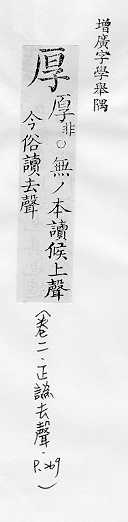 增廣字學舉隅
厚厚非。無丿本讀候上聲
今俗讀去聲
(卷二.正譌去聲.P.269)